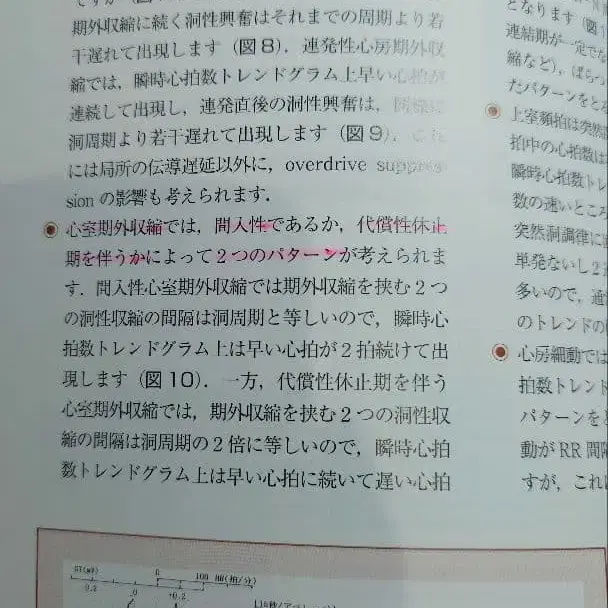 期外収縮に続く洞性興奮はそれまでの周期より若
干遅れて出現します（図8）．連発性心房期外収
縮では，瞬時心拍数トレンドグラム上早い心拍が
連続して出現し，連発直後の洞性興奮は，同様に
洞周期より若干遅れて出現します（図9）．これ
には局所の伝導遅延以外に，overdrive suppres-
sion の影響も考えられます．
心室期外収縮では，間入性であるか，代償性休止
期を伴うかによって2つのパターンが考えられま
す．間入性心室期外収縮では期外収縮を挟む2つ
の洞性収縮の間隔は洞周期と等しいので，瞬時心
拍数トレンドグラム上は早い心拍が2拍続けて出
現します（図10）．一方，代償性休止期を伴う
心室期外収縮では，期外収縮を挟む2つの洞性収
縮の間隔は洞周期の2倍に等しいので，瞬時心拍
数トレンドグラム上は早い心拍に続いて遅い心拍
となります（図
連結期が一定でな
縮など），ばらつ
たパターンをと
上室頻拍は突然
拍中の心拍数は
瞬時心拍数トレ
数の速いところ
突然洞調律に
単発ないし2
多いので，通
のトレンドの
心房細動では
拍数トレンド
パターンをと
動が RR 間隔
すが，これは
ST(mV)
-0.2 0 +0.2
0 100 HR(拍/分)